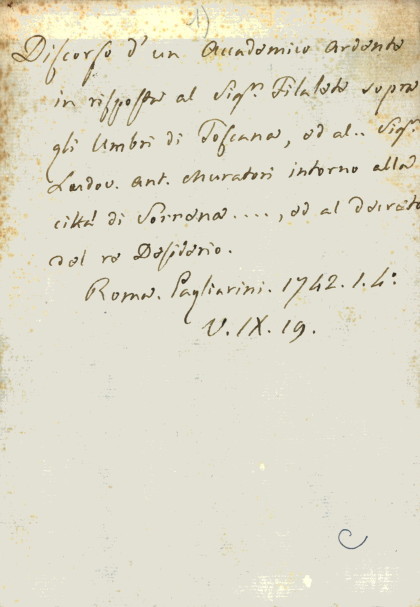 1)
Discorso d'un Accademico Ardente
in risposta al Sigr. Filalete sopra
gli Umbri di Toscana, ed al.. Sigr.
Ludov. Ant. Muratori intorno alla
città di Sorrena...., ed al decreto
del re Desiderio.
Roma. Pagliarini. 1742. 1. 4:
V. IX. 19.